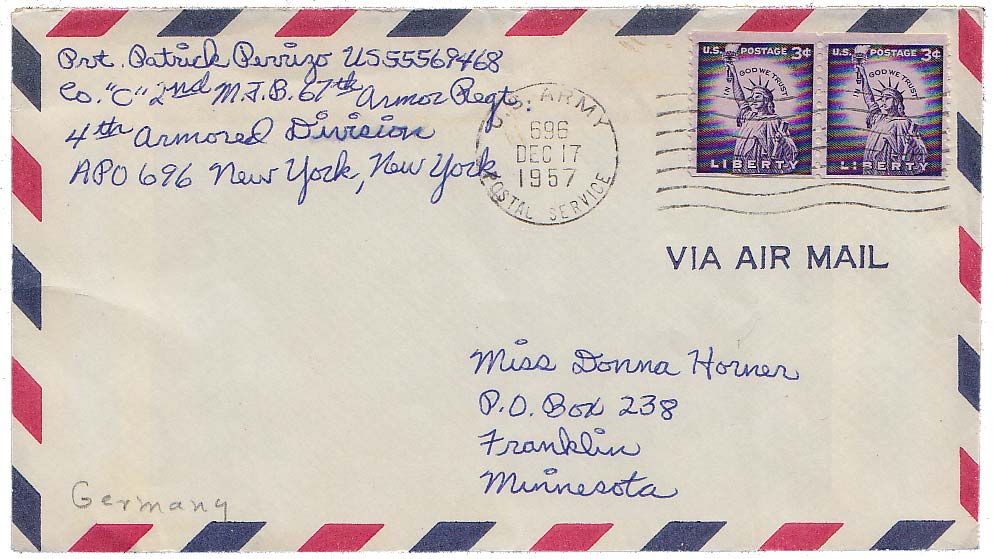 Pvt. Patrick Perrizo US55569468
Co. "C" 2nd M.T.B. 67th Armor Regt.
4th Armored Division
APO 696 New York, New York
U.S. ARMY
696
DEC 17
1957
POSTAL SERVICE
U.S. POSTAGE 3¢
IN GOD WE TRUST
LIBERTY
U.S. POSTAGE 3¢
IN GOD WE TRUST
LIBERTY
VIA AIR MAIL
Miss Donna Horner
P.O. Box 238
Franklin
Minnesota
Germany